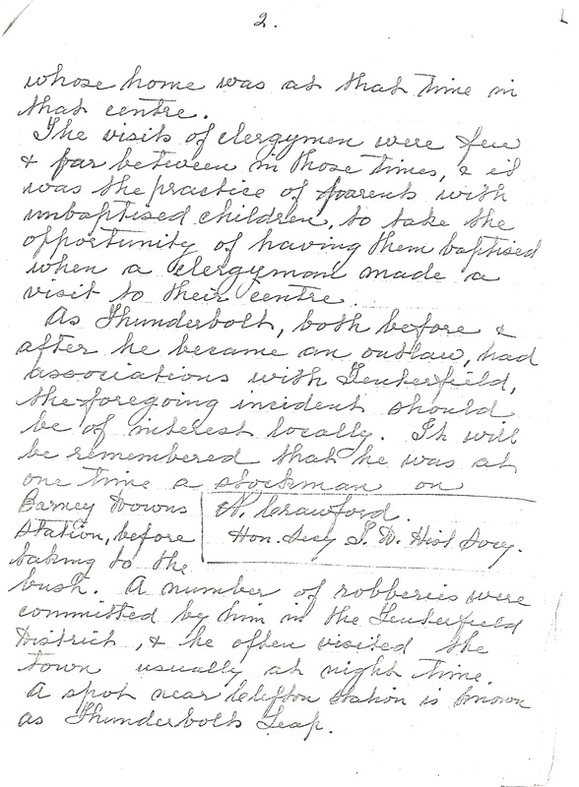 2.
whose home was at that time in
that centre.
The visits of clergymen were few
& far between in those times, & it
was the practice of parents with
unbaptised children, to take the
opportunity of having them baptised
when a clergyman made a
visit to their centre.
As Thunderbolt, both before &
after he became an outlaw, had
associations with Tenterfield,
the foregoing incident should
be of interest locally. It will
be remembered that he was at
one time a stockman on
Barney Downs
Station, before
taking to the
N. Crawford.
Hon. Secy T. D. Hist Socy.
bush. A number of robberies were
committed by him in the Tenterfield
District, & he often visited the
town usually at night time.
A spot near Cleifton Station is known
as Thunderbolts Leap.